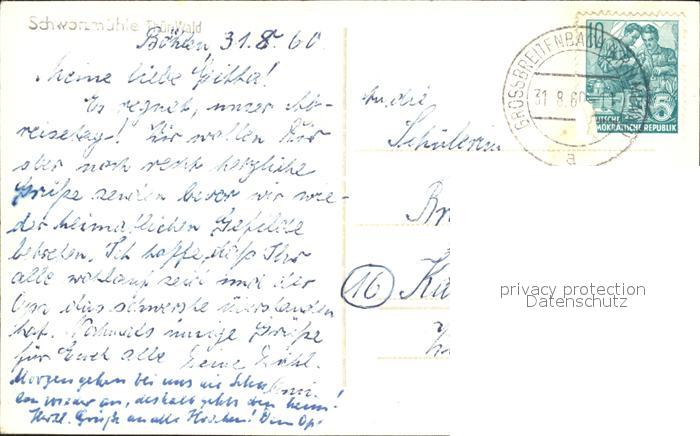 Schwarzmühle Thür Wald
Böhlen 31.8.60
Meine liebe Gitta!
Es regnet, unser Ab-
reisetag! Wir wollen Dir
aber noch recht herzliche
Grüße senden bevor wir wie-
der heimatlichen Gefilde
betreten. Ich hoffe, daß Ihr
alle wohlauf seid und der
Opa das schwerste überstanden
hat. Nochmals innige Grüße
für Euch alle Deine
Morgen gehen bei uns die Schu
len wieder an, deshalb gehts dann heim!
Herzl. Grüße an alle
An die
Schülerin
16
GROSSBREITENBACH
31.8.60
a
10
5
DEUTSCHE
DEMOKRATISCHE REPUBLIK
privacy protection
Datenschutz